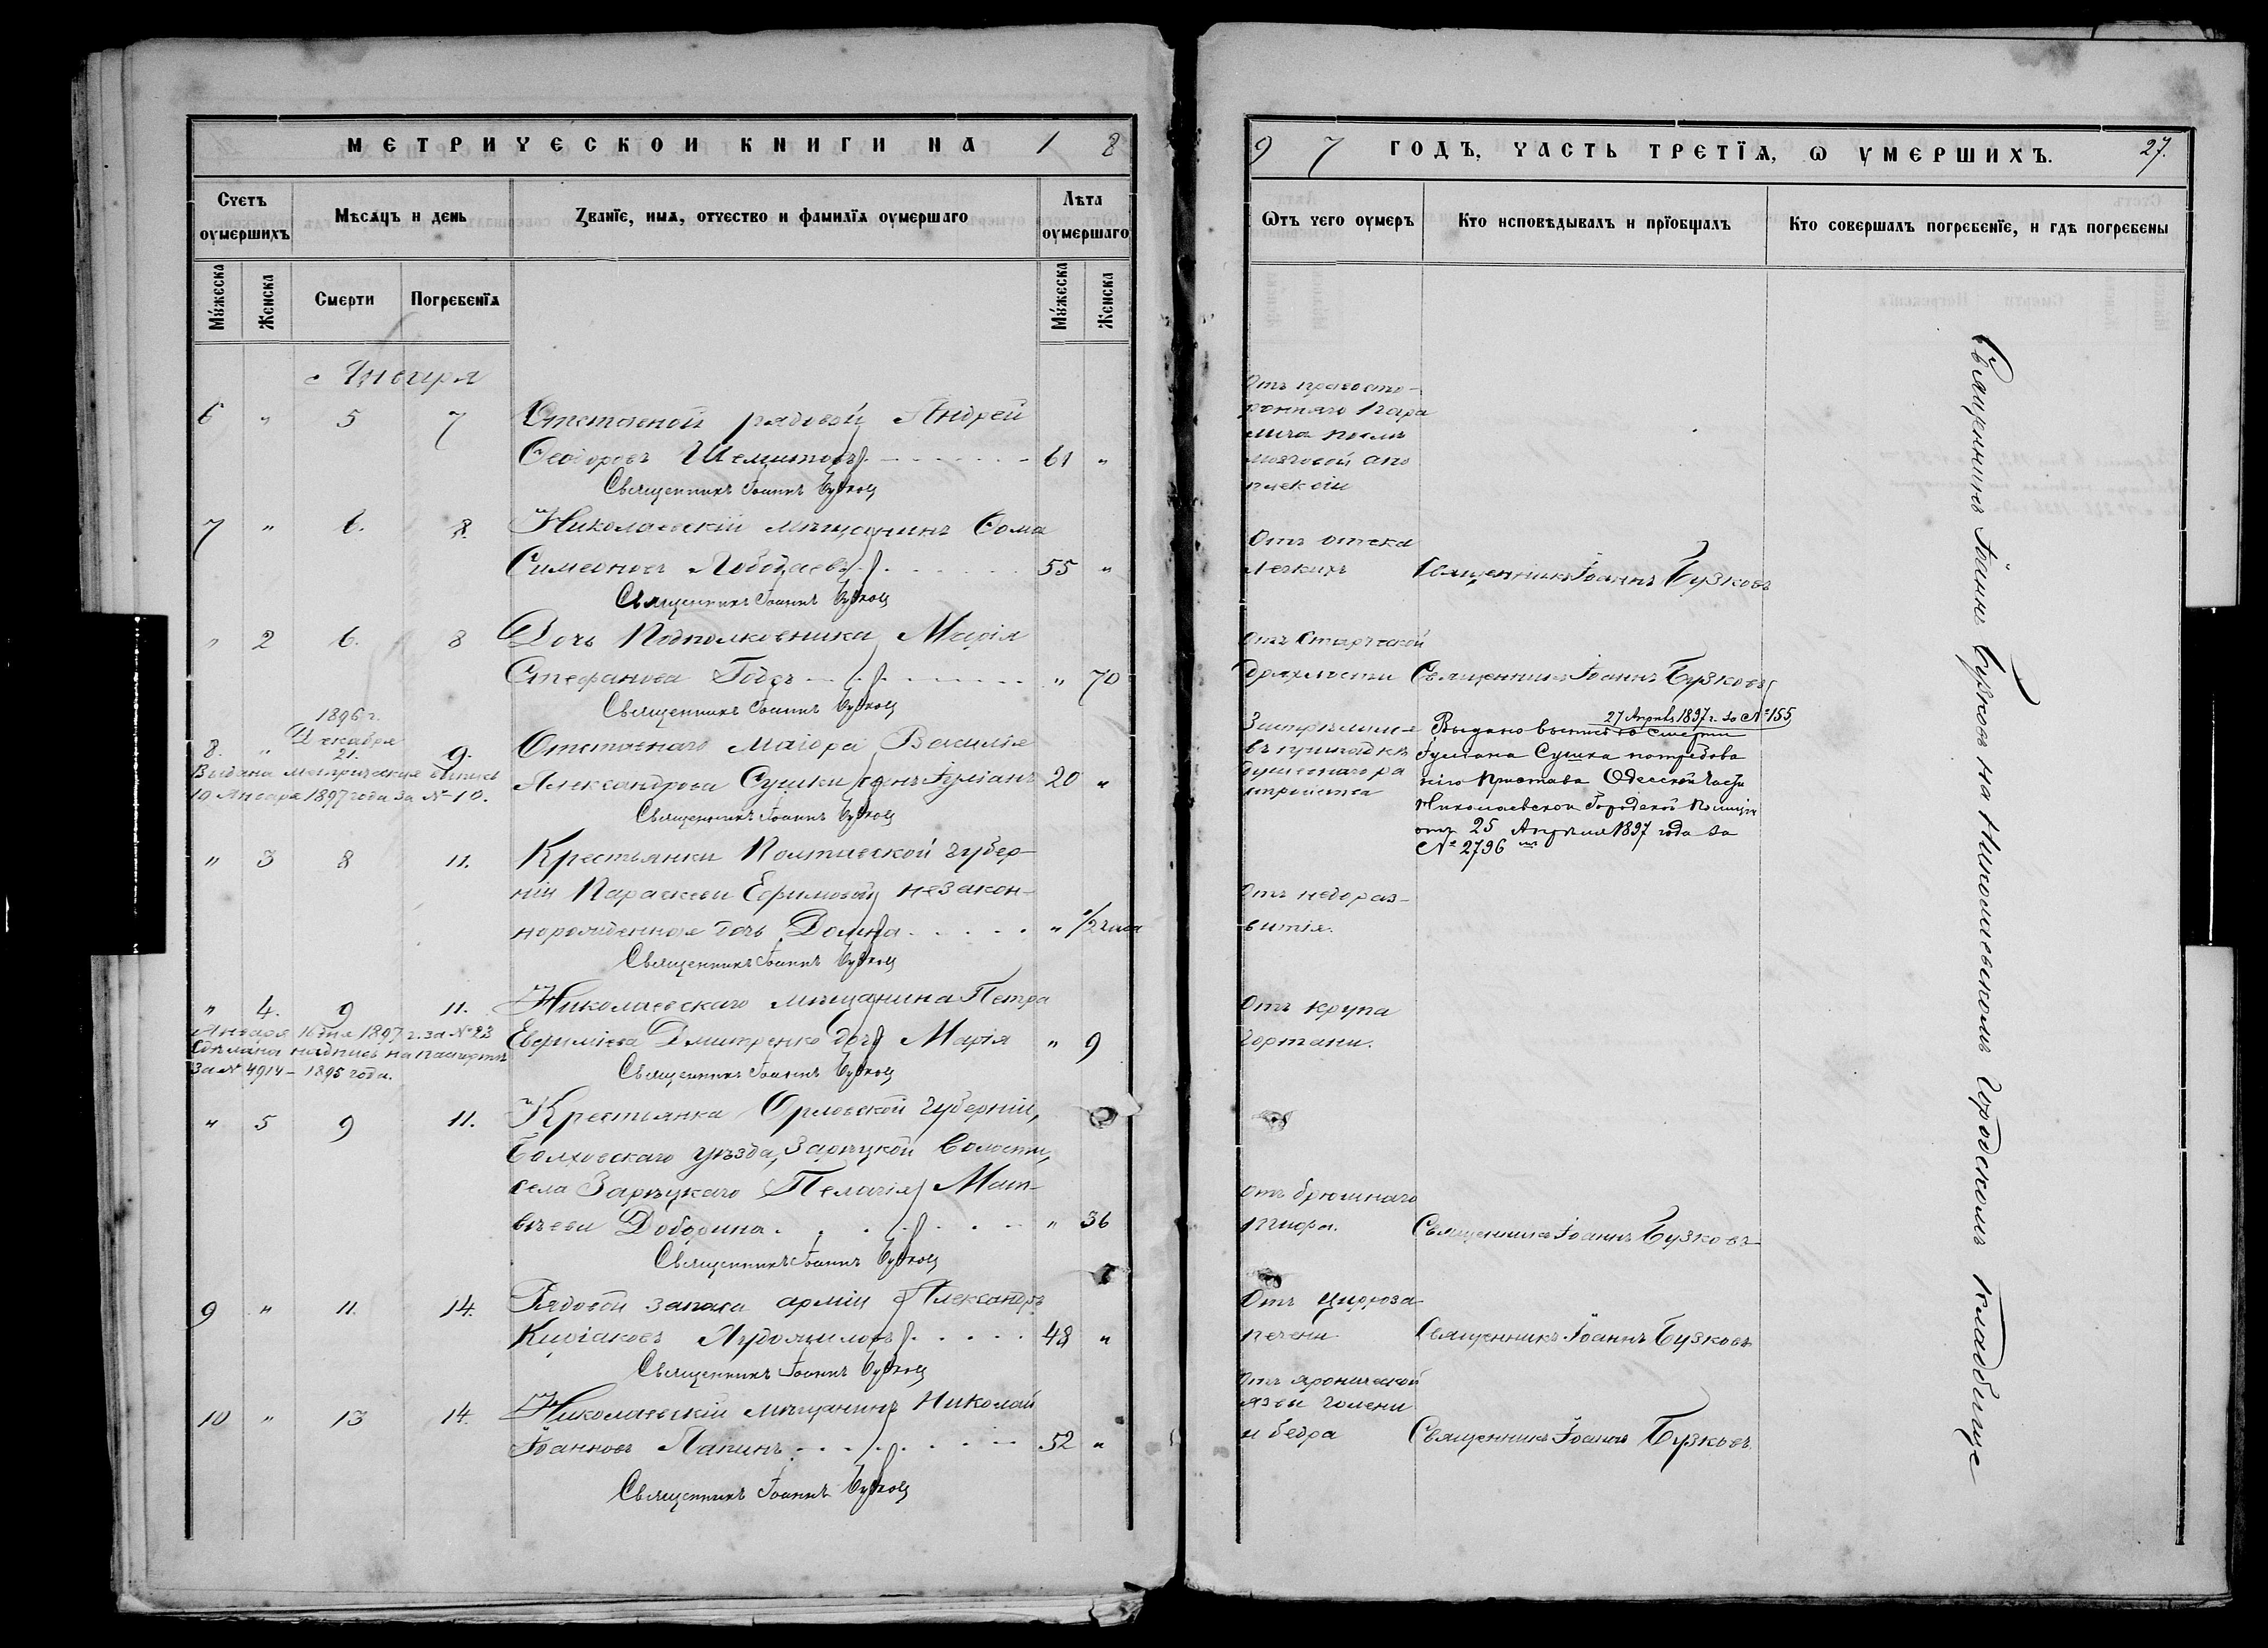 МЕТРИЧЕСКОЙ КНИГИ НА 1 8
Счетъ оумершихъ
Мѣсяцъ и день
Званїе, имя, отчество и фамилїя оумершаго
Лѣта оумершаго
Мужеска Женска Смерти Погребенїя Мужеска Женска
Января
6 " 5 7 Отставной рядовой Андрей
Ѳеодоровъ 61 "
Священникъ Іоаннъ Бузковъ
7 " 6. 8. Николаевскій мѣщанинъ Ѳома
Симеоновъ 55 "
Священникъ Іоаннъ Бузковъ
" 2 6. 8 Дочь Подполковника Марія
Стефанова " 70
Священникъ Іоаннъ Бузковъ
1896 г.
Декабря
8. " 21. 9. Отставнаго Маіора Василія
Александрова Сушки сынъ Іуліанъ 20 "
Выдана метрическая выпись
10 Января 1897 года за № 10.
Священникъ Іоаннъ Бузковъ
" 3 8 11. Крестьянки Полтавской губер-
ніи Параскевы Ефимовой незакон-
норожденная дочь Домна " 1/2 часа
Священникъ Іоаннъ Бузковъ
" 4. 9 11. Николаевскаго мѣщанина Петра
Евфиміева Дмитренко дочь Марія " 9
Января 16 дня 1897 г. за № 23
сдѣлана надпись на паспортѣ
за № 4914 - 1895 года.
Священникъ Іоаннъ Бузковъ
" 5 9 11. Крестьянка Орловской губерніи,
Болховскаго уѣзда, Зарѣцкой волости,
села Зарѣцкаго Пелагія Мат-
вѣева " 36
Священникъ Іоаннъ Бузковъ
9 " 11. 14. Рядовой запаса арміи Александръ
Киріаковъ 48 "
Священникъ Іоаннъ Бузковъ
10 " 13 14. Николаевскій мѣщанинъ Николай
Іоанновъ Лапинъ 52 "
Священникъ Іоаннъ Бузковъ
9 7 ГОДЪ, ЧАСТЬ ТРЕТЇЯ, Ѡ УМЕРШИХЪ. 27.
Ѿтъ чего оумеръ
Кто исповѣдывалъ и прїобщалъ
Кто совершалъ погребенїе, и гдѣ погребены
Отъ правосто-
ронняго пара
лича послѣ
мозговой апо
плексіи
Отъ отека
легкихъ Священникъ Іоаннъ Бузковъ
Отъ старческой
дряхлости Священникъ Іоаннъ Бузковъ
Застрѣлился
въ припадкѣ
душевнаго ра
стройства
27 Апрѣля 1897 г. за № 155
Выдано выпись о смерти
Іуліана Сушка потребова
нію Пристава Одесской части
Николаевской Городской Полиціи
отъ 25 Апрѣля 1897 года за
№ 2796
Отъ недораз-
витія.
Отъ крупа
гортани.
Отъ брюшнаго
тифа. Священникъ Іоаннъ Бузковъ
Отъ цирроза
печени Священникъ Іоаннъ Бузковъ
Отъ хронической
язвы голени
и бедра Священникъ Іоаннъ Бузковъ
Священникъ Іоаннъ Бузковъ на Николаевскомъ Городскомъ кладбище